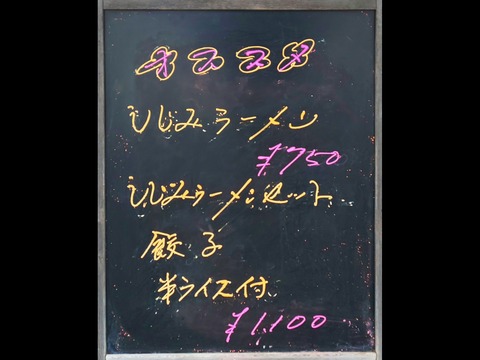 オススメ
しじみラーメン
¥750
しじみラーメンセット
餃子
半ライス付
¥1,100